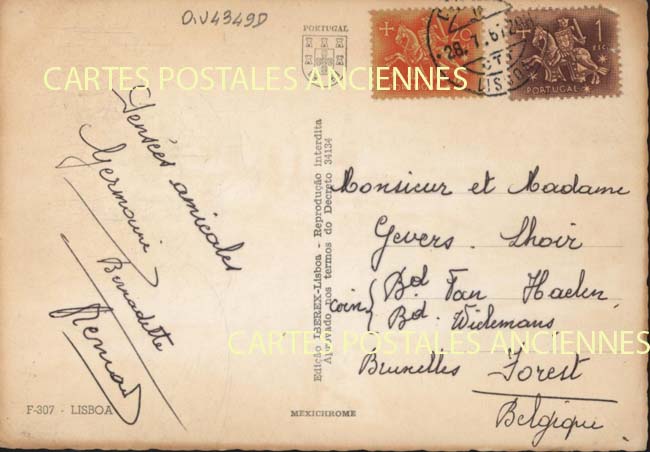 O.V4349D
PORTUGAL
CARTES POSTALES ANCIENNES
28.1.6
LISBOA
1
ESC
PORTUGAL
Pensées amicales
Germaine
Bernadette
Edição IBEREX-Lisboa - Reprodução interdita
nos termos do Decreto 34134
Monsieur et Madame
Gevers. Lhoir
coin { Bd Van Haelen
Bd. Wielemans
CARTES POSTALES ANCIENNES
Bruxelles Forest
Belgique
F-307 - LISBOA
MEXICHROME